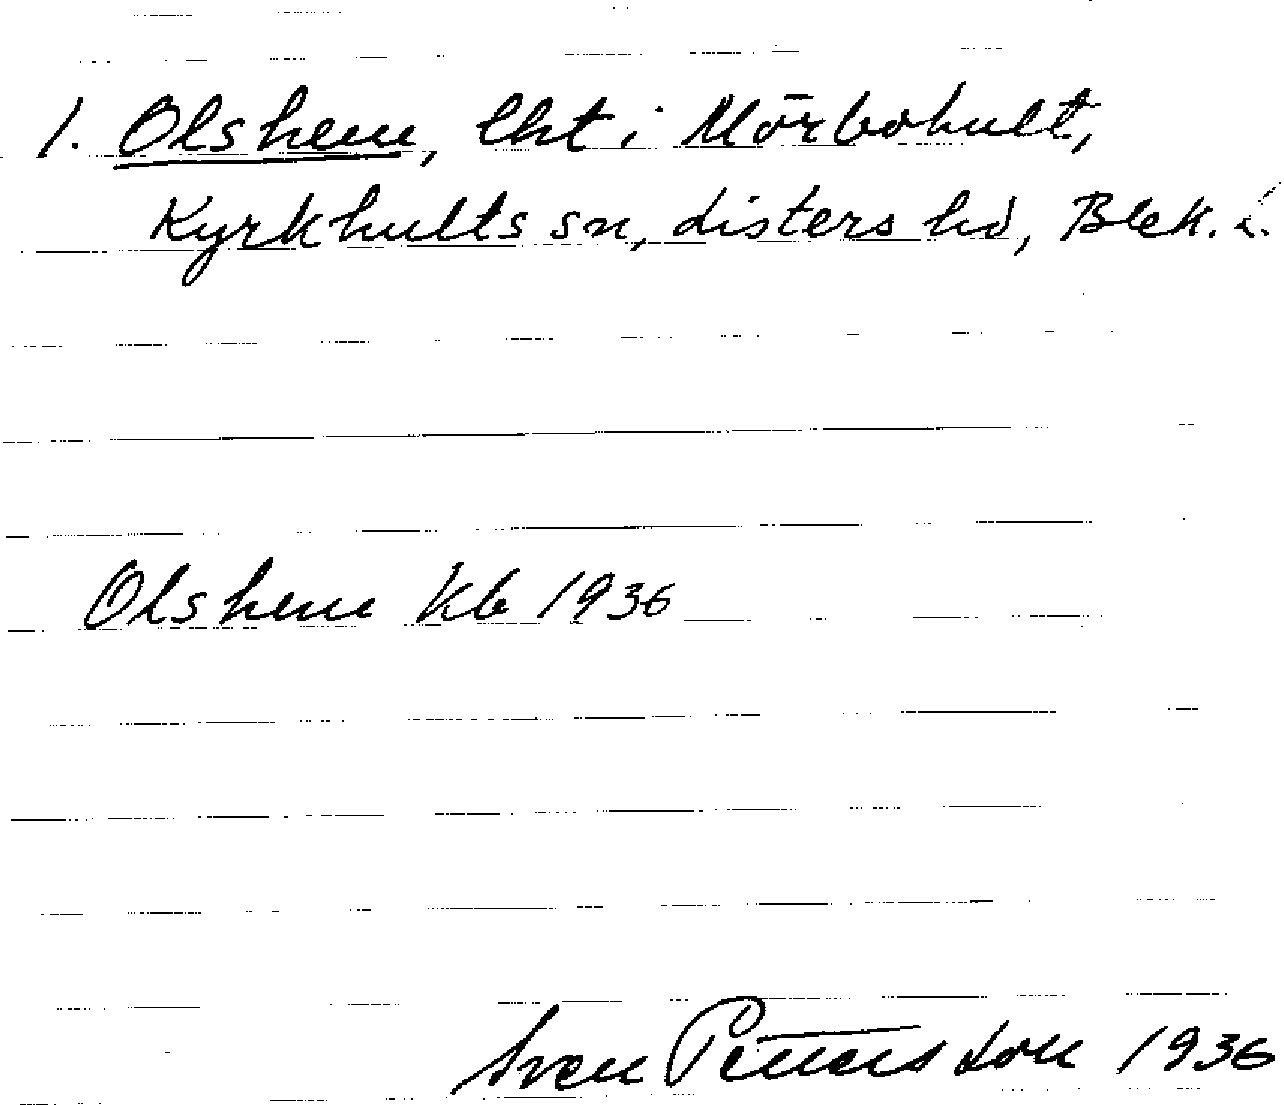 1. Olshem, lht i Mörbohult,
Kyrkhults sn, Listers hd, Blek. l.
Olshem Kb 1936
Sven Pettersson 1936